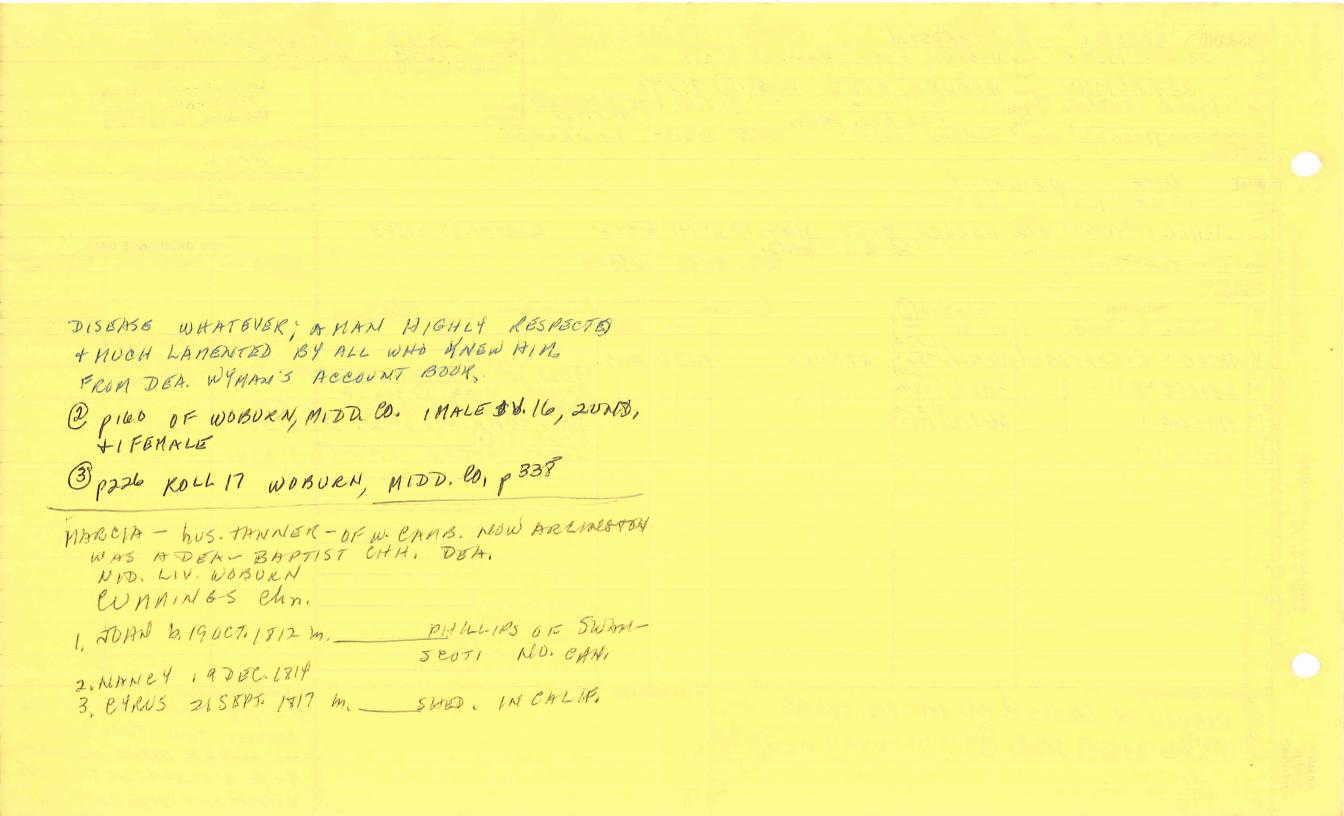 DISEASE WHATEVER; A MAN HIGHLY RESPECTED
+ MUCH LAMENTED BY ALL WHO KNEW HIM.
FROM DEA. WYMAN'S ACCOUNT BOOK.
② p160 OF WOBURN, MIDD. CO. 1 MALE 16, 2 UND,
+ 1 FEMALE
③ p226 ROLL 17 WOBURN, MIDD. CO, p 338
MARCIA — hus. TANNER - OF W. CAMB. NOW ARLINGTON
WAS A DEA - BAPTIST CHH. DEA.
LIV. WOBURN
CUMMINGS Chn.
1. JOHN b. 19 OCT. 1812 m. ____ PHILLIPS OF SWAM-
SCOTT
2. NANCY 19 DEC. 1814
3. CYRUS 21 SEPT. 1817 m. ____ SHED. IN CALIF.